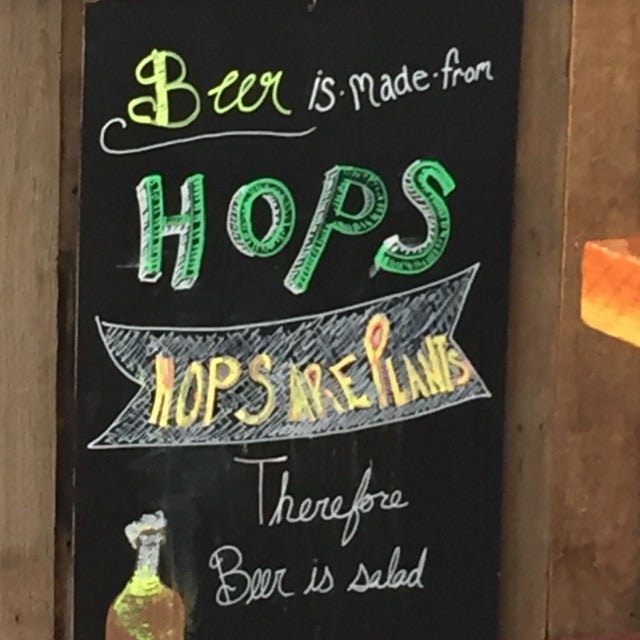 Beer is·made·from
HOPS
HOPS ARE PLANTS
Therefore
Beer is salad